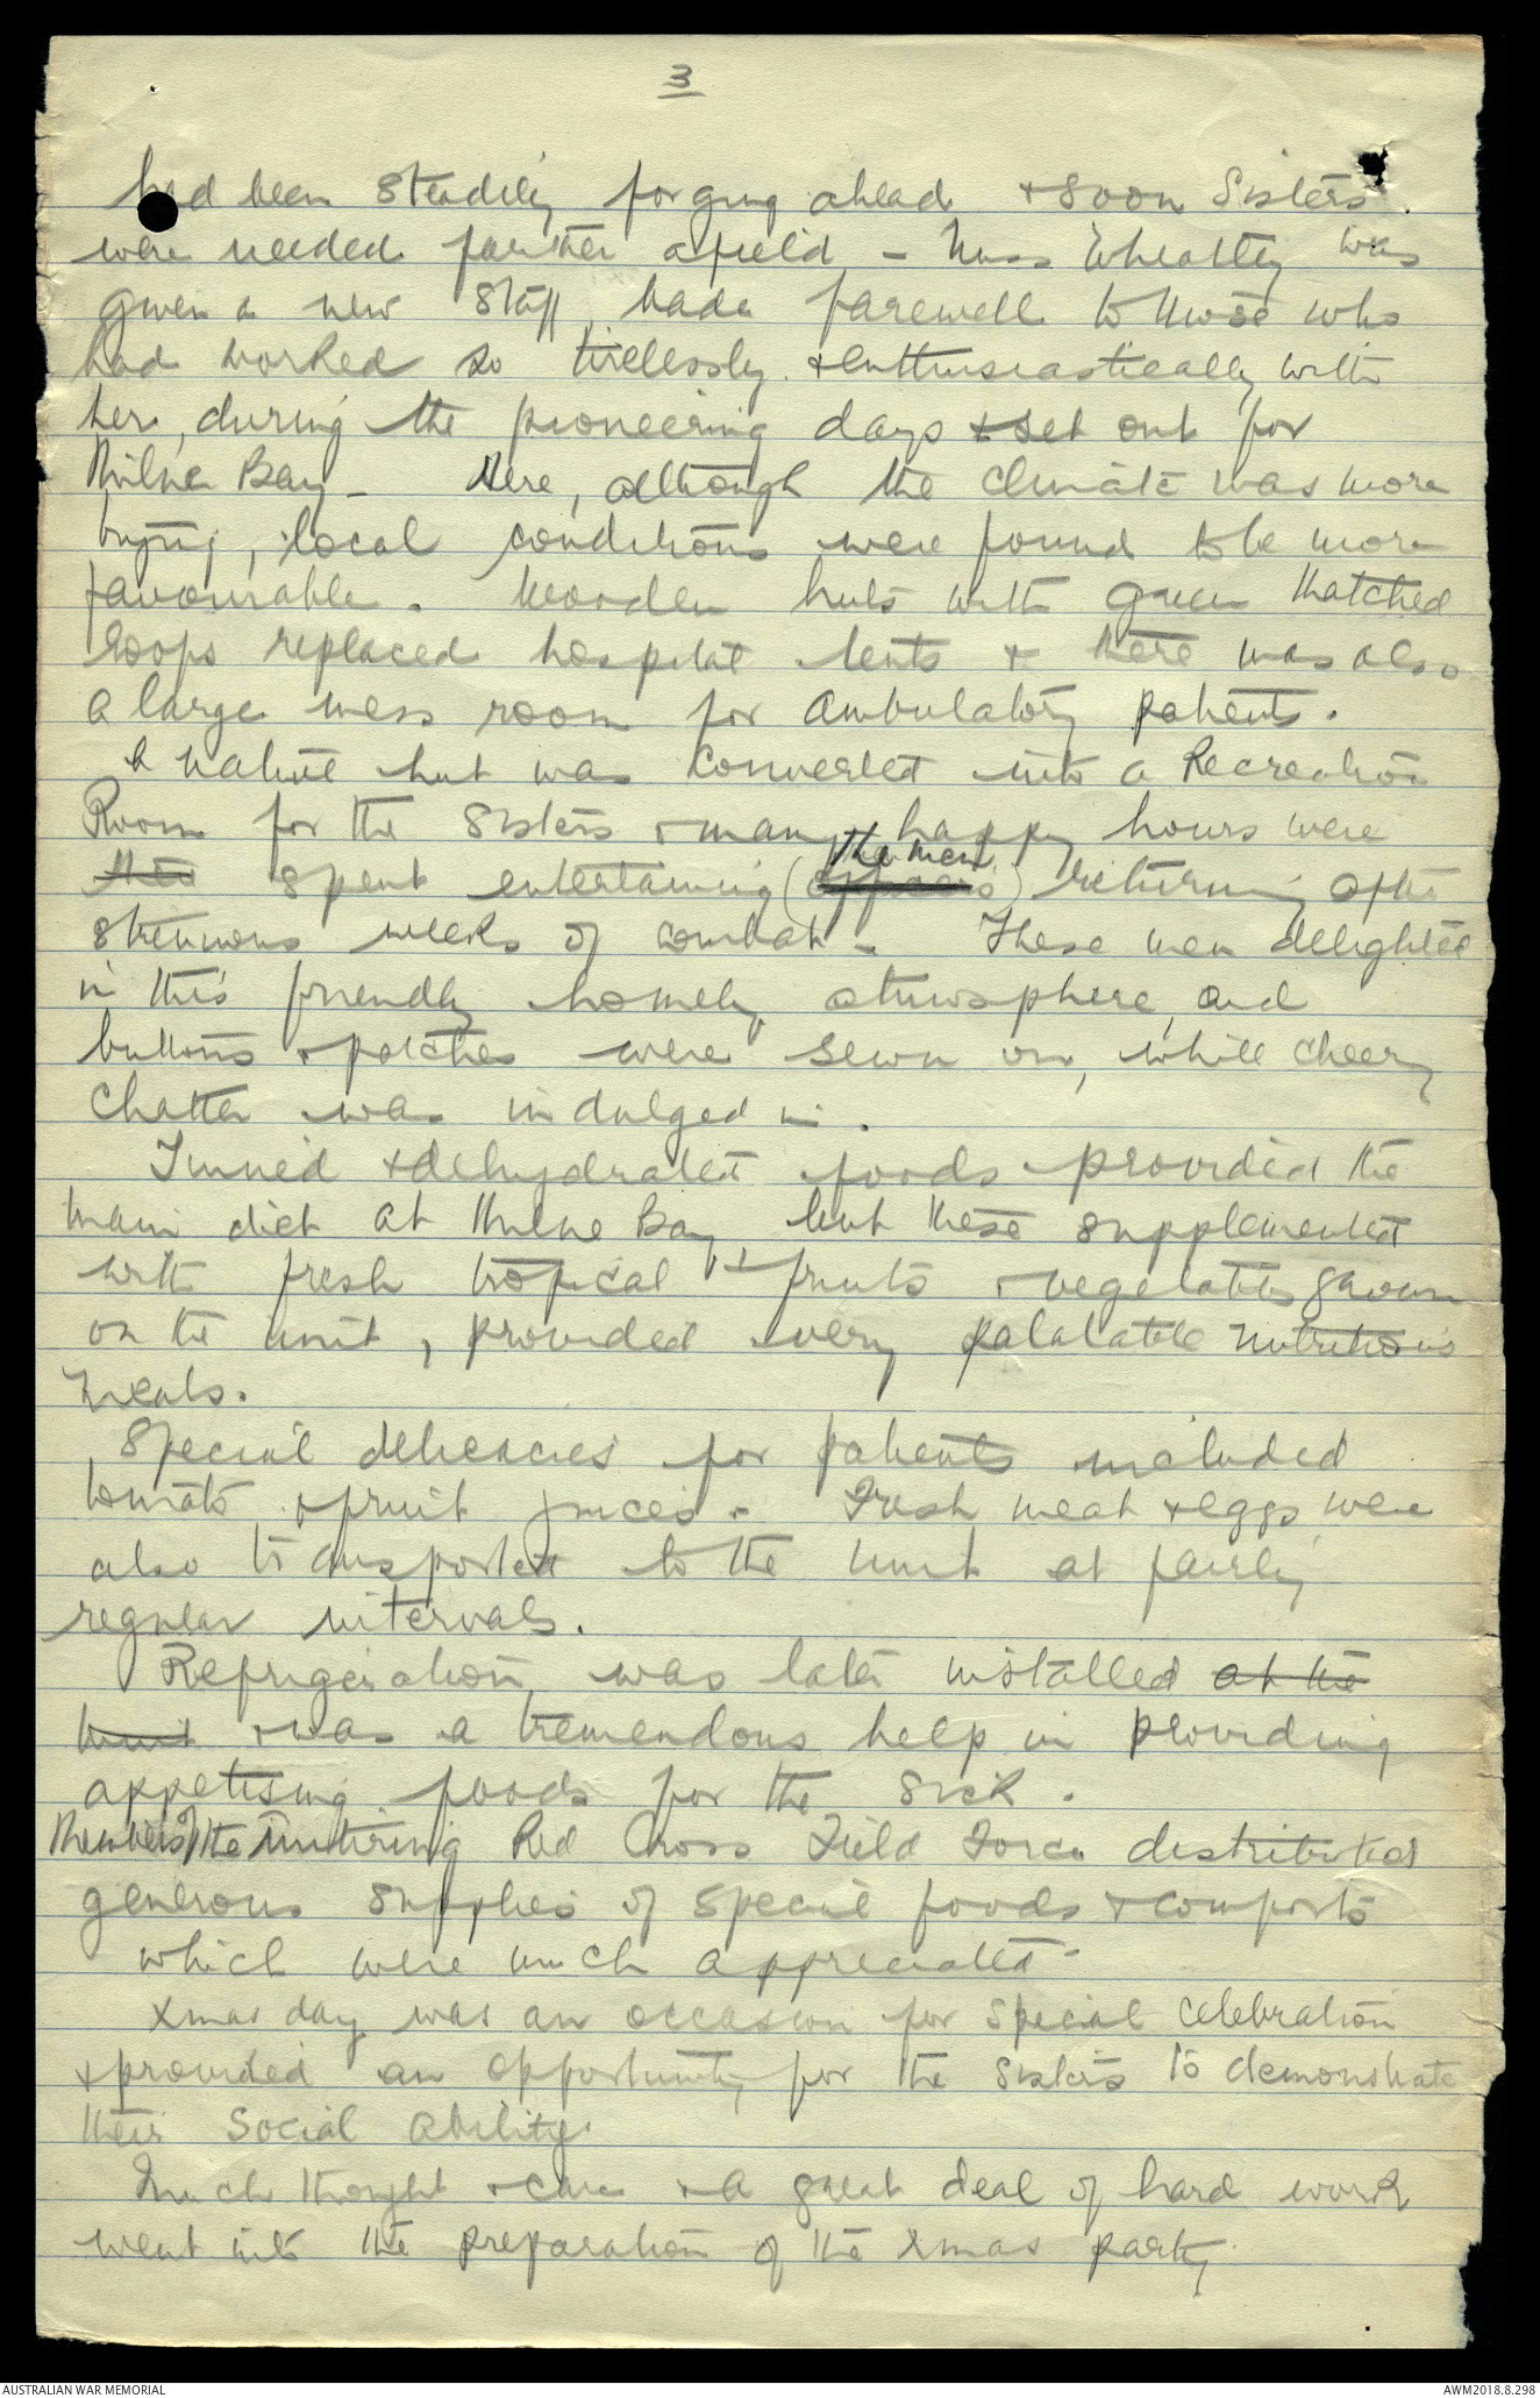 3
had been steadily forging ahead & soon Sisters
were needed further afield - Miss Wheatley was
given a new staff, bade farewell to those who
had worked so tirelessly & enthusiastically with
her, during the pioneering days & set out for
Milne Bay - Here, although the climate was more
trying, local conditions were found to be more
favourable. Wooden huts with green thatched
roofs replaced hospital tents & there was also
a large mess room for ambulatory patients.
A native hut was converted into a Recreation
Room for the Sisters & many happy hours were
the men
spent entertaining (officers) returning after
strenuous weeks of combat - These men delighted
in this friendly homely atmosphere, and
buttons & patches were sewn on, while cheery
chatter was indulged in.
Tinned & dehydrated foods provided the
main diet at Milne Bay but these supplemented
with fresh tropical fruits & vegetables grown
on the unit, provided very palatable nutritious
meals.
Special delicacies for patients included
tomato & fruit juices - Fresh meat & eggs were
also transported to the unit at fairly
regular intervals.
Refrigeration, was later installed at the
unit & was a tremendous help in providing
appetising foods for the sick.
Members of the untiring Red Cross Field Force distributed
generous supplies of special foods & comforts
which were much appreciated -
Xmas day was an occasion for special celebration
& provided an opportunity for the Sisters to demonstrate
their social ability.
Much thought & care & a great deal of hard work
went into the preparation of the Xmas party
AUSTRALIAN WAR MEMORIAL
AWM2018.8.298